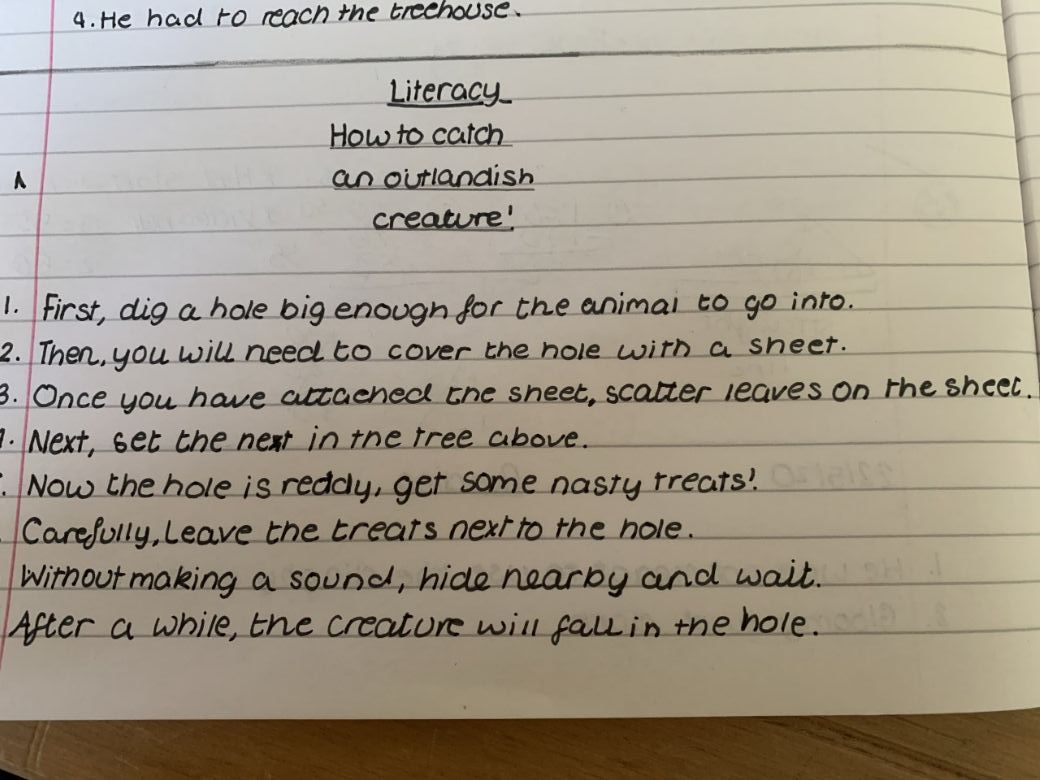 4. He had to reach the treehouse.
Literacy
How to catch
an outlandish
creature!
1. First, dig a hole big enough for the animal to go into.
2. Then, you will need to cover the hole with a sheet.
3. Once you have attached the sheet, scatter leaves on the sheet.
Next, set the nest in the tree above.
Now the hole is reddy, get some nasty treats!
Carefully, Leave the treats next to the hole.
Without making a sound, hide nearby and wait.
After a while, the creature will fall in the hole.